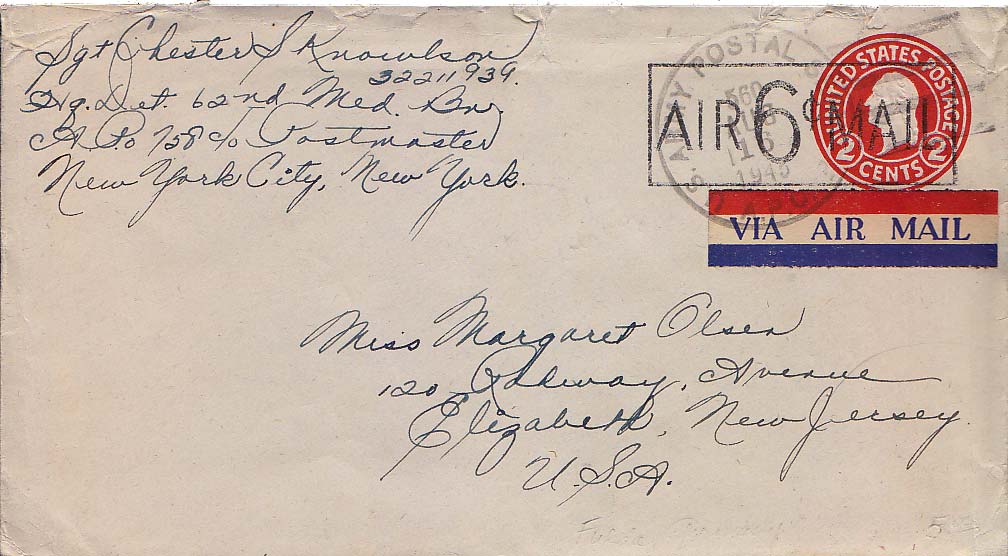 Sgt Chester S Knowlson
32211939.
Hq. Det. 62nd Med. Bn,
A Po 758 c/o Postmaster
New York City, New York.
U.S. ARMY POSTAL
1945
APO
AIR 6¢ MAIL
UNITED STATES POSTAGE
2 CENTS 2
VIA AIR MAIL
Miss Margaret Olsen
120 Rahway, Avenue
Elizabeth, New Jersey.
U.S.A.